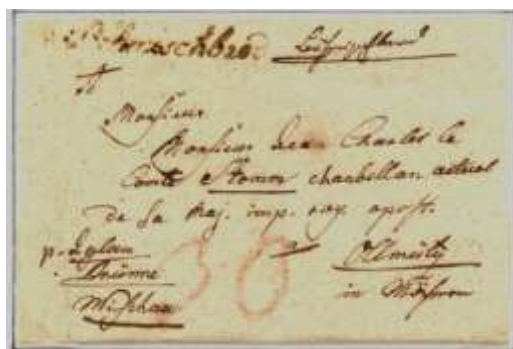 Monsieur
Monsieur Jean Charles le
Comte Stomm chambellan actuel
de Sa Maj. imp. roy. apost.
p. Iglau
Brünne
Wischau
Ollmütz
in Mähren